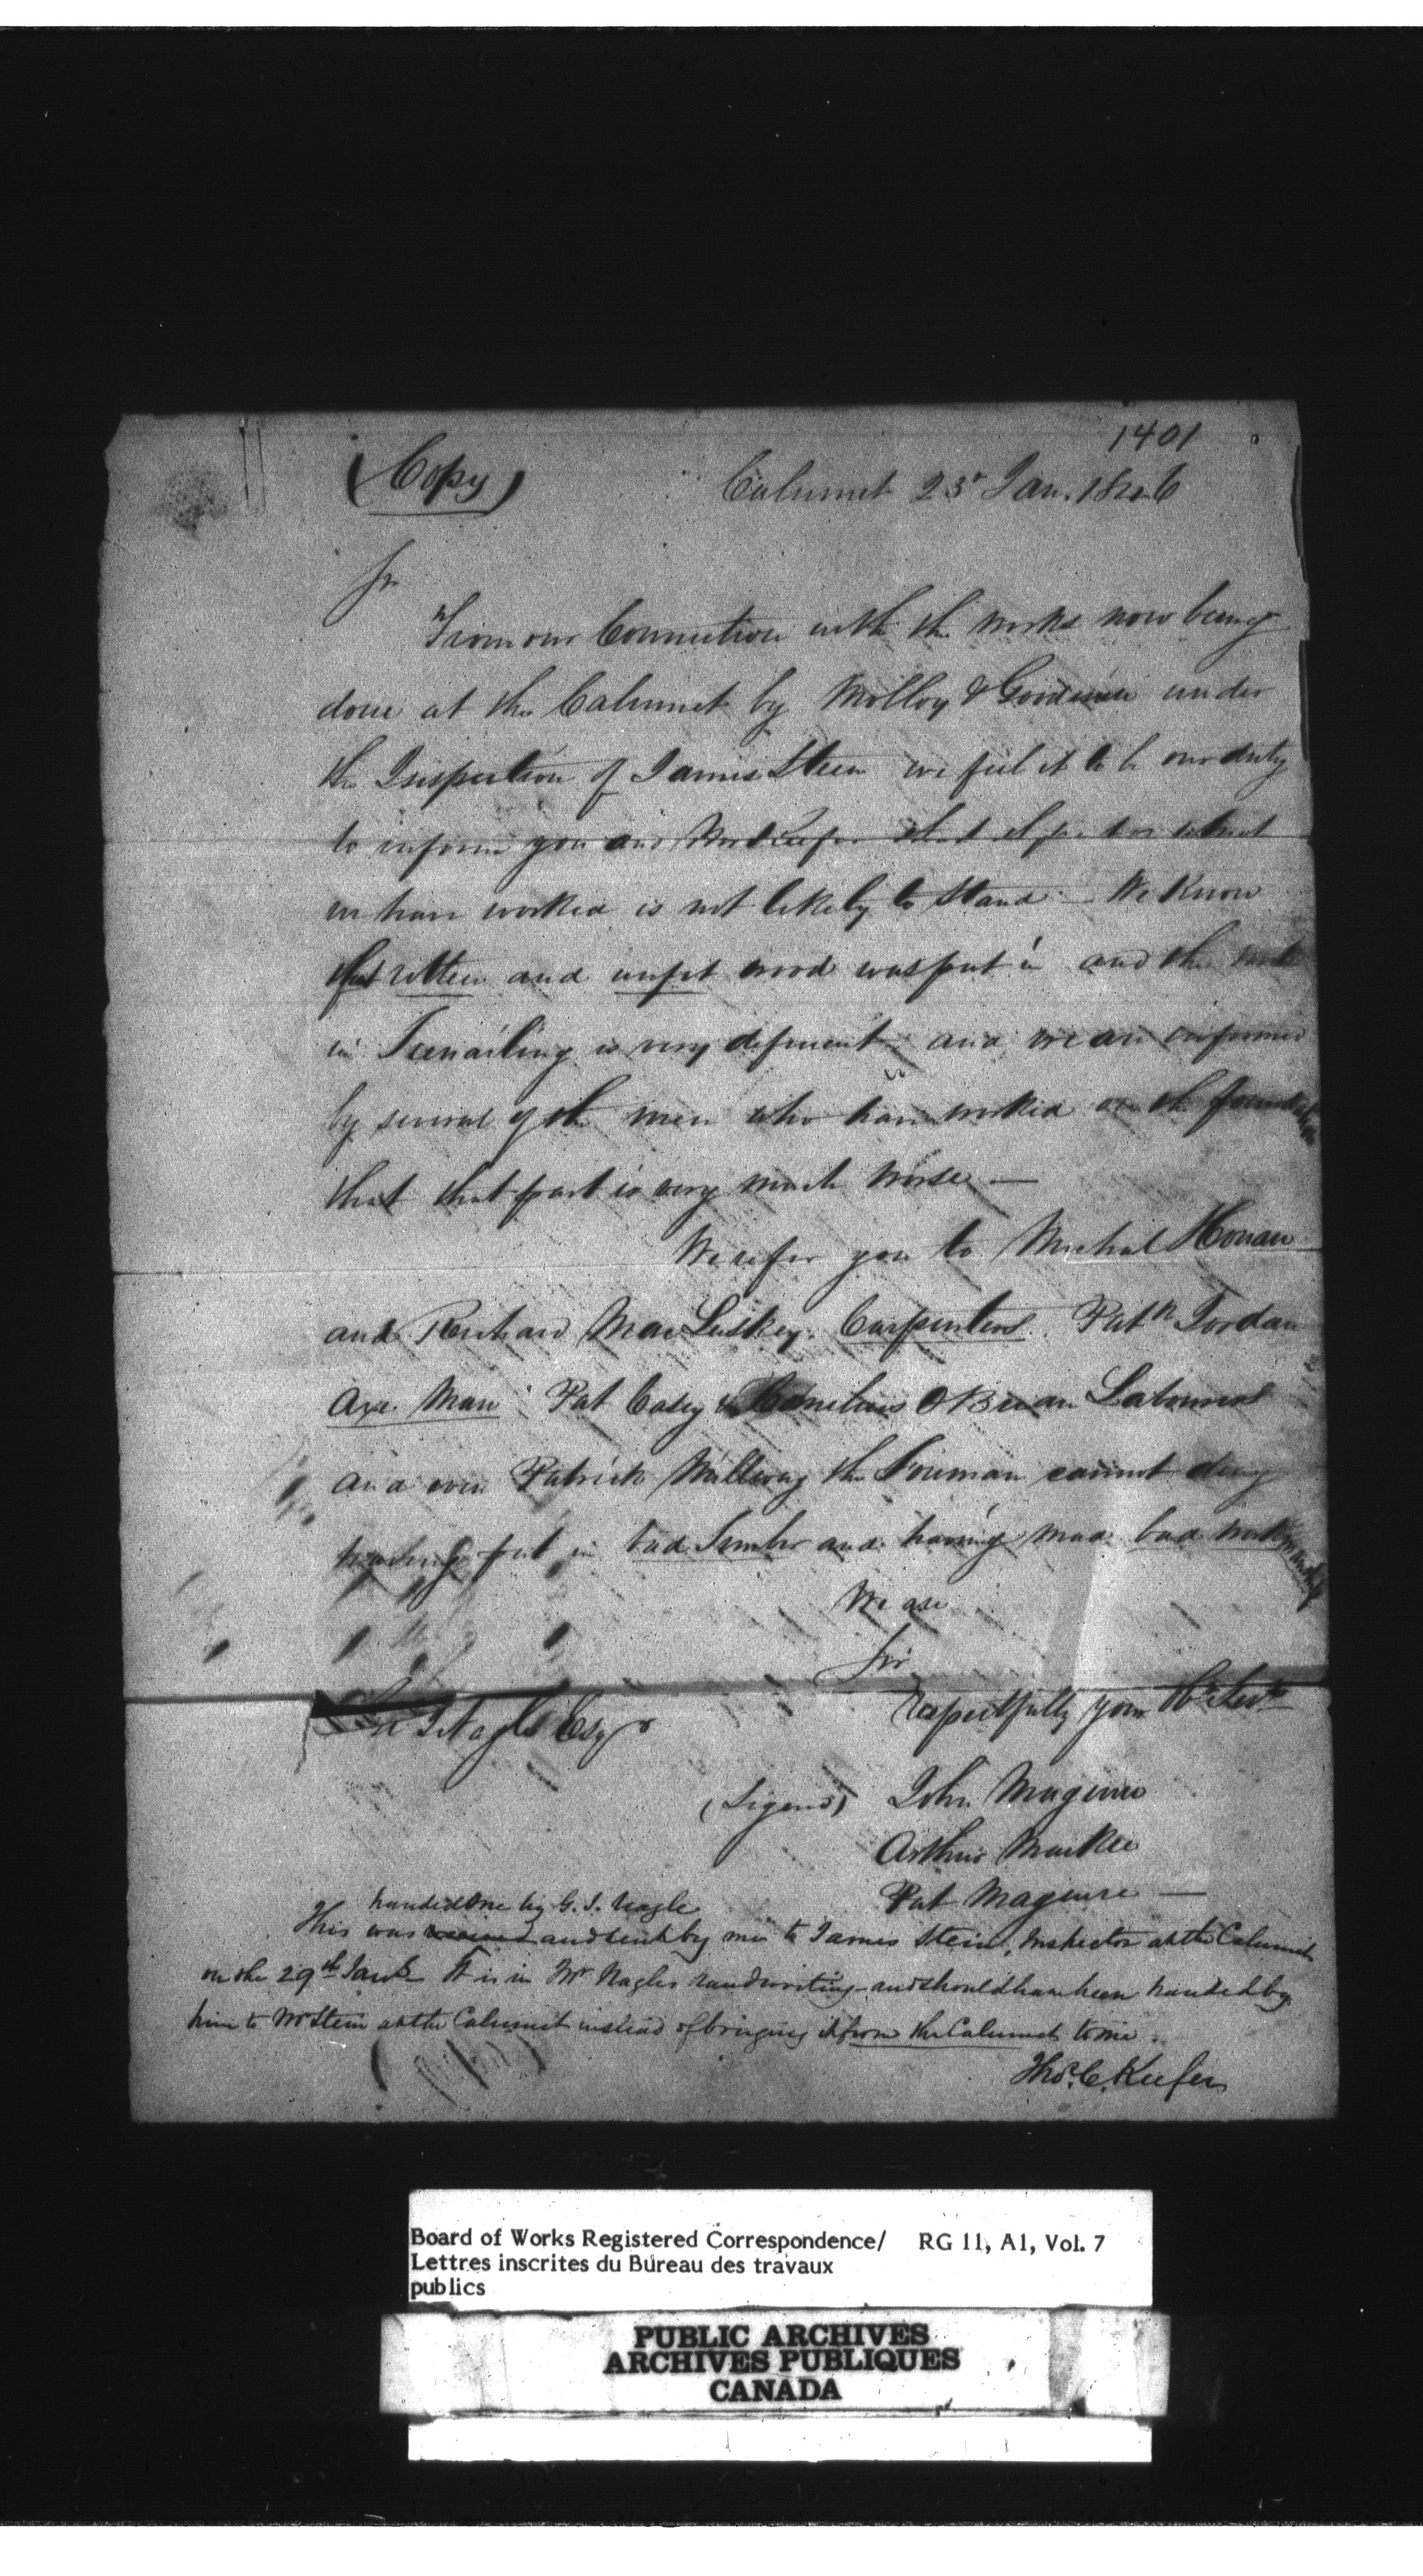 1401
(Copy)
Calumet 23d Jan. 1846
Sir
From our Connection with the works now being
done at the Calumet by Molloy & Goodwin under
the Inspection of James Steen we feel it to be our duty
to inform you and Mr Keefer that as far as what
we have worked is not likely to Stand — We Know
that rotten and unfit wood was put in and the work
in Treenailing is very deficient and we are informed
by several of the men who have worked on the foundation
that that part is very much worse —
We refer you to Michael Honan
and Richard MacLuskey. Carpenters. Patk Jordan
Axe Man Pat Casey & Cornelius OBrian Labourers
and even Patrick the Foreman cannot deny
having put in bad Timber and having mad bad workmanship
We are
Sir
Respectfully your Ob Servts
Nagle Esqr
(Signed) John Maguire
Arthur MacKee
Pat Maguire —
handed me by G. S. Nagle
This was received and sent by me to James Stein, Inspector at the Calumet
on the 29th Jany It is in Mr Nagles handwriting and should have been handed by
him to Mr Stein at the Calumet instead of bringing it from the Calumet to me.
Thos. C. Keefer
Board of Works Registered Correspondence/ RG 11, A1, Vol. 7
Lettres inscrites du Bureau des travaux
publics
PUBLIC ARCHIVES
ARCHIVES PUBLIQUES
CANADA